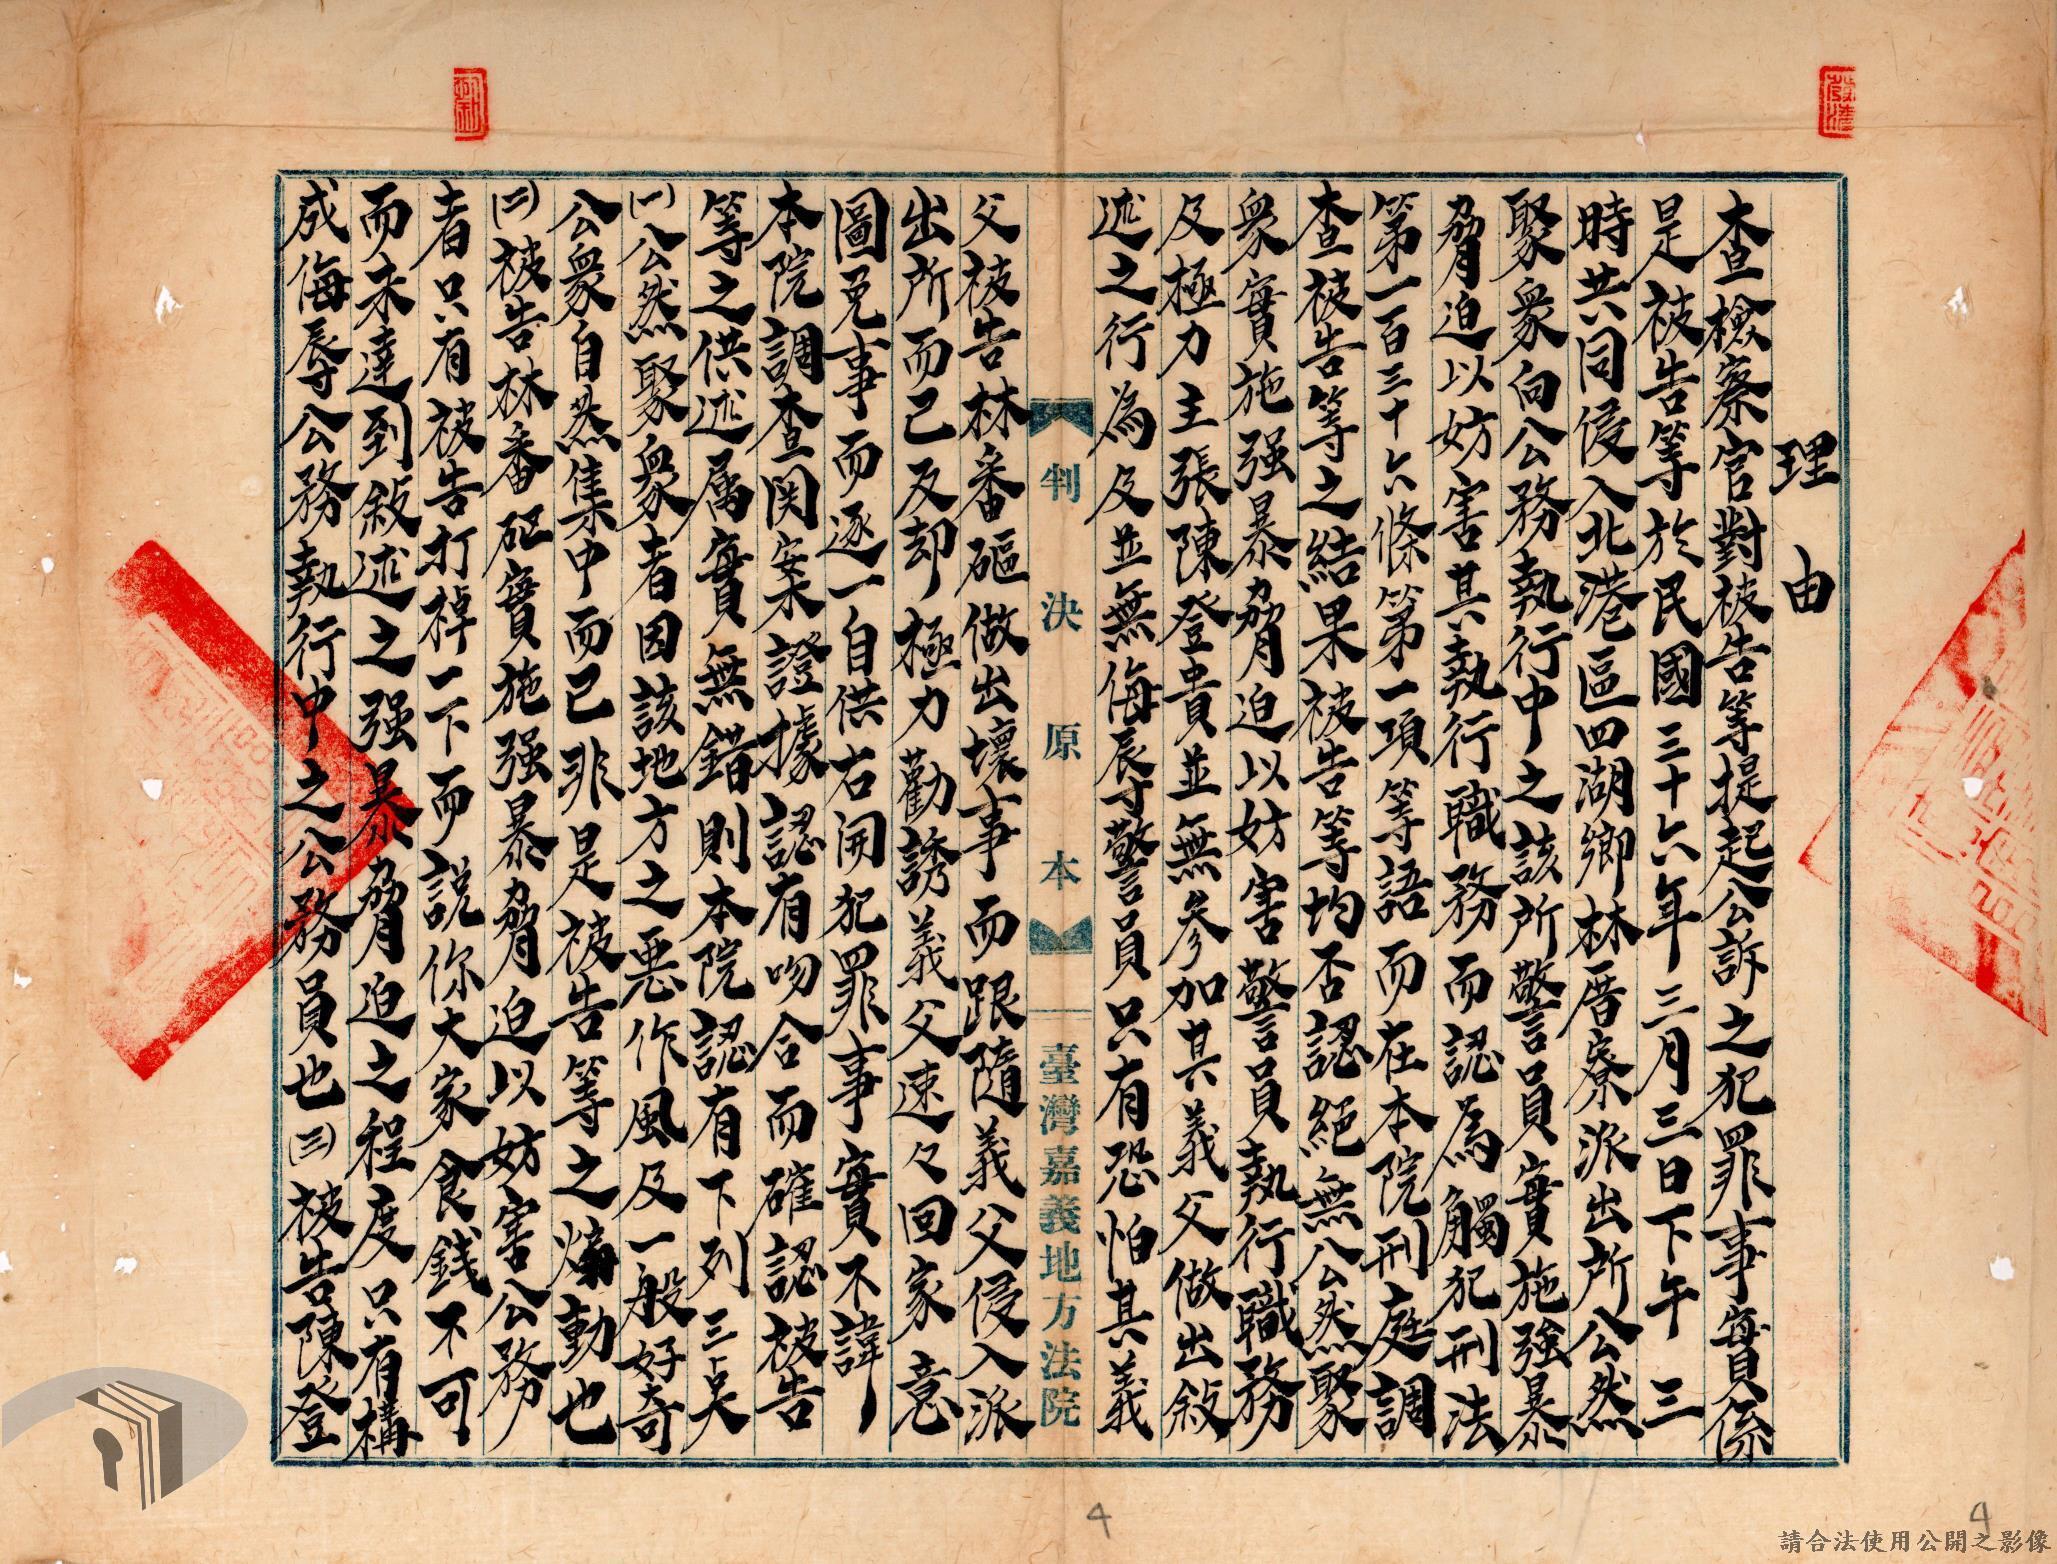 理由
本查檢察官對被告等提起公訴之犯罪事實係
是被告等於民國三十六年三月三日下午三
時共同侵入北港區四湖鄉林厝寮派出所公然
聚衆向公務執行中之該所警員實施強暴
脅迫以妨害其執行職務而認為觸犯刑法
第一百三十六條第一項等語而在本院刑庭調
查被告等之結果被告等均否認絕無公然聚
衆實施强暴脅迫以妨害警員執行職務
及極力主張陳登貴並無參加其義父做出敍
述之行為及並無侮辱警員只有恐怕其義
判決原本
臺灣嘉義地方法院
父被告林番砸做出壞事而跟隨義父侵入派
出所而已及却極力勸誘義父速々回家意
圖免事而逐一自供右開犯罪事實不諱
本院調查関案證據認有吻合而確認被告
等之供述属實無錯則本院認有下列三点
㈠公然聚衆者因該地方之惡作風及一般好奇
公衆自然集中而已非是被告等之煽動也
㈡被告林番砸實施强暴脅迫以妨害公務
者只有被告打棹一下而説你大家食錢不可
而未達到敍述之强暴脅迫之程度只有構
成侮辱公務執行中之公務員也㈢被告陳登
4
4
請合法使用公開之影像